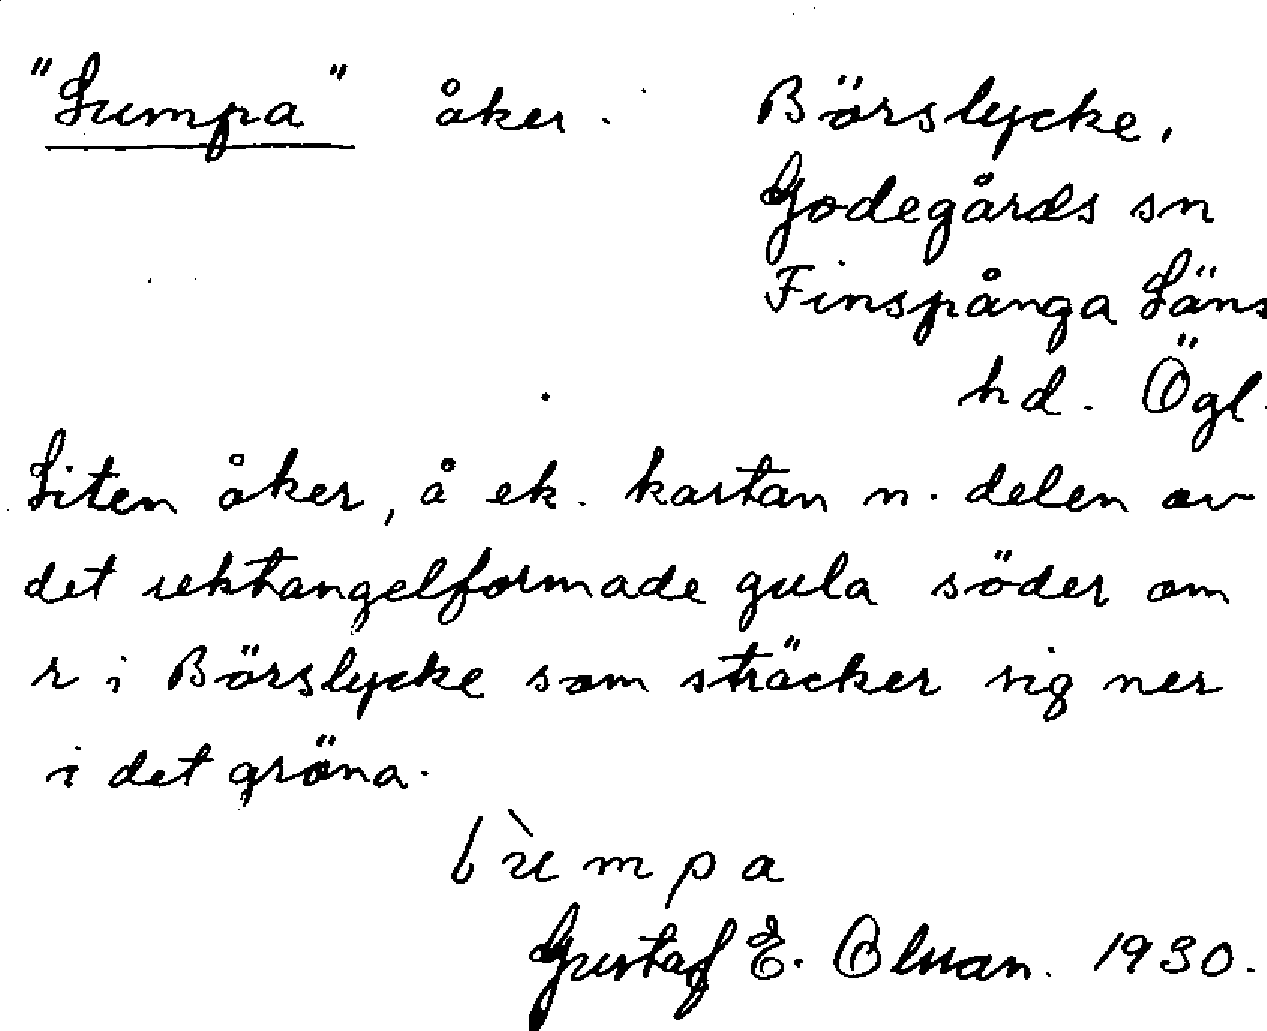 "Lumpa" åker. Börslycke,
Godegårds sn
Finspånga Läns
hd. Ögl.
Liten åker, å ek. kartan n. delen av
det rektangelformade gula söder om
r i Börslycke som sträcker sig ner
i det gröna.
lùmpa
Gustaf E. Olsson. 1930.